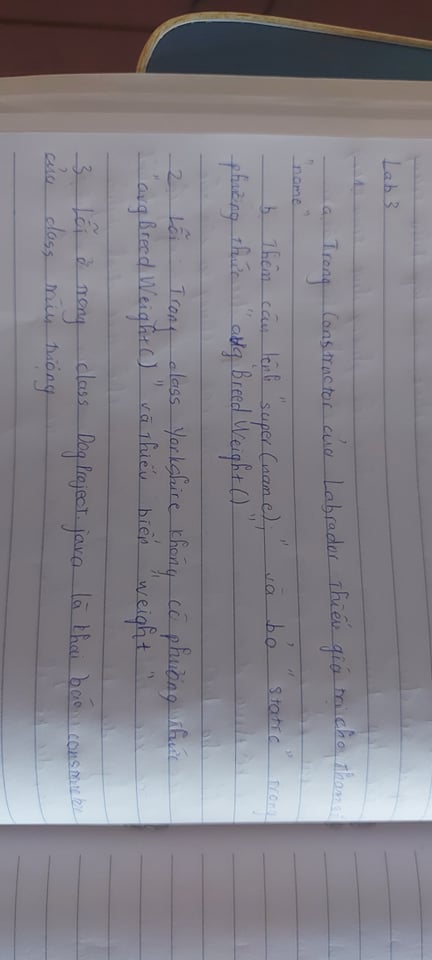 Lab 3
1.
a. Trong Constructor của Labrador thiếu giá trị cho tham số
"name"
b. Thêm câu lệnh "super(name);" và bỏ "static" trong
phương thức "avgBreedWeight()"
2. Lỗi: Trong class Yorkshire không có phương thức
"avgBreedWeight()" và thiếu biến "weight"
3. Lỗi ở trong class DogProject.java là khai báo constructor
của class trừu tượng